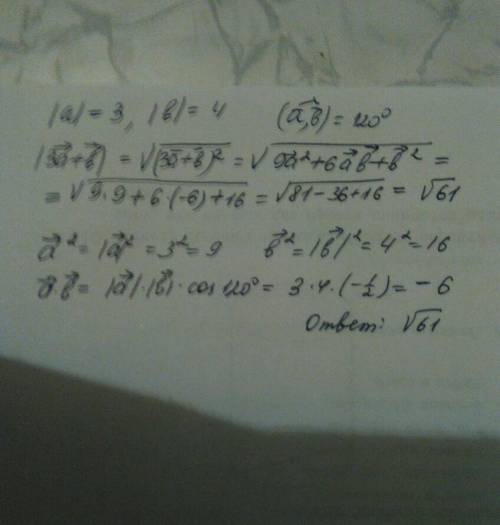 |a| = 3, |b| = 4 (a⃗,b⃗) = 120°
|3a⃗+b⃗| = √(3a⃗+b⃗)² = √9a⃗²+6a⃗b⃗+b⃗² =
= √9·9+6·(-6)+16 = √81-36+16 = √61
a⃗² = |a⃗|² = 3² = 9 b⃗² = |b⃗|² = 4² = 16
a⃗·b⃗ = |a⃗|·|b⃗|·cos 120° = 3·4·(-1/2) = -6
Ответ: √61